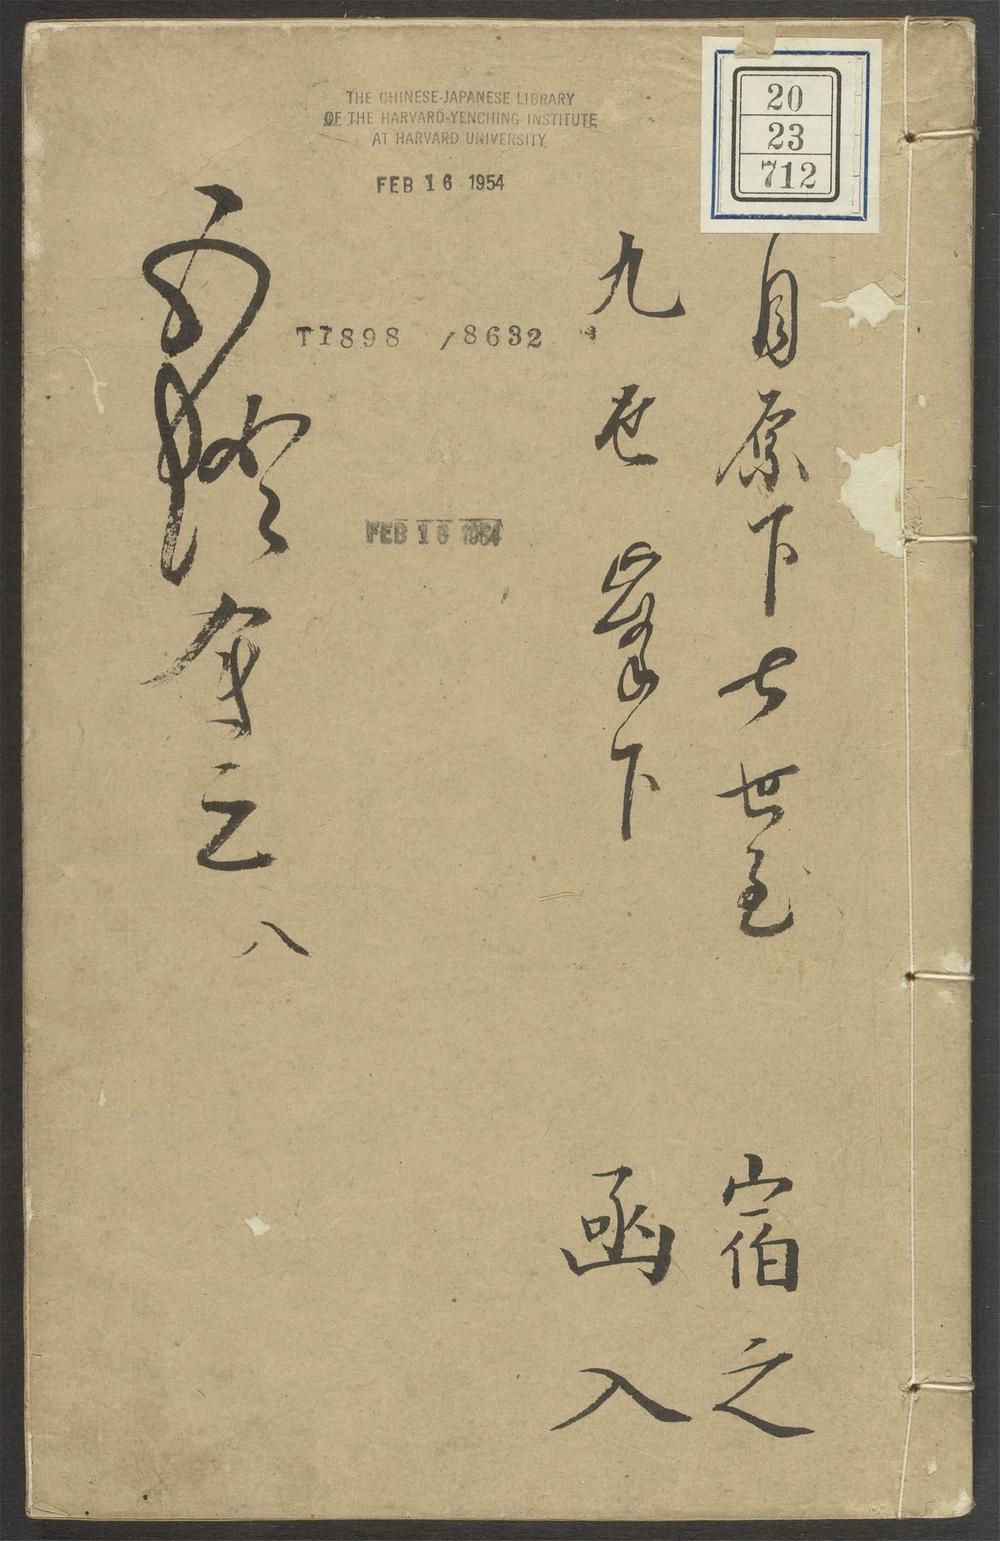 THE CHINESE-JAPANESE LIBRARY
OF THE HARVARD-YENCHING INSTITUTE
AT HARVARD UNIVERSITY
FEB 16 1954
20
23
712
青原下七世至
九世峯下
宿之
函入
T1898 /8632
FEB 16 1954
五燈會元 八